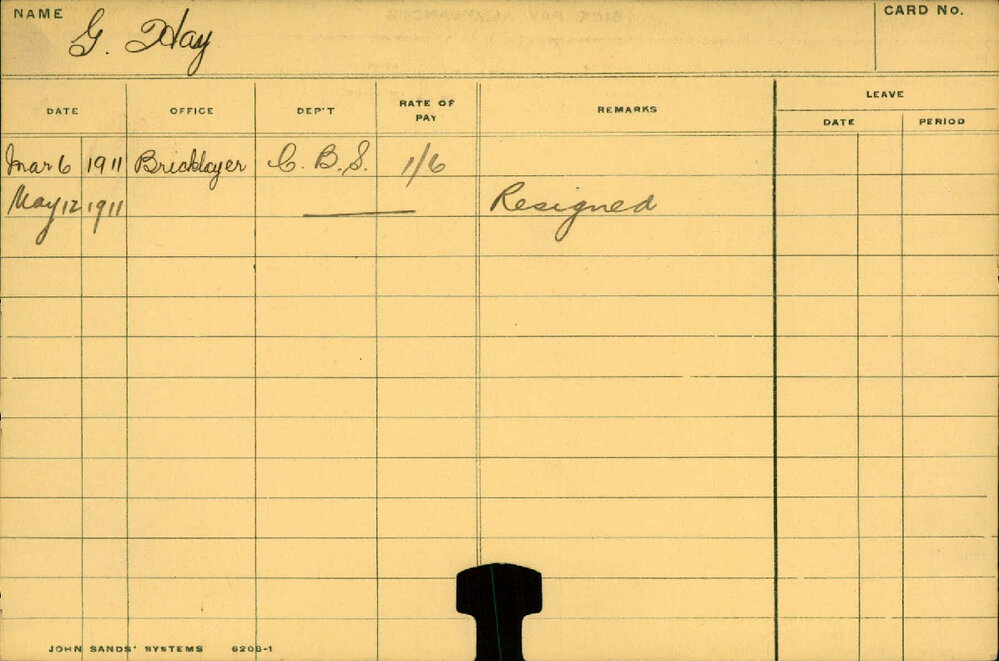 NAME G. Hay CARD No.
LEAVE
DATE OFFICE DEP'T RATE OF PAY REMARKS DATE PERIOD
Mar 6 1911 Bricklayer C. B. S. 1/6
May 12 1911 Resigned
JOHN SANDS' SYSTEMS 6205-1